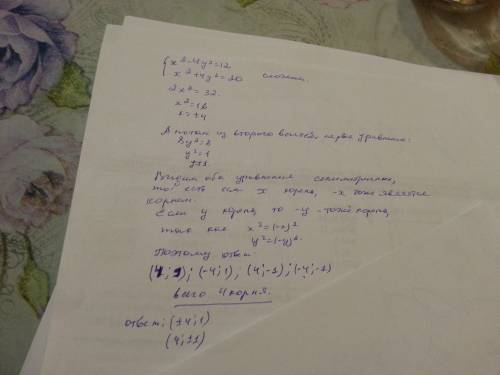 {x²-4y²=12
x²+4y²=20 сложим.
2x²=32.
x²=16
x=±4
А потом из второго вычтем первое уравнение:
8y²=8
y²=1
y±1
Видим оба уравнения симметричные,
то есть если x корень, -x тоже является
корнем.
Если y корень, то -y - тоже корень,
так как x²=(-x)²
y²=(-y)².
Поэтому ответ:
(4;1); (-4;1); (4;-1); (-4;-1)
всего 4 корня.
ответ: (±4;1)
(4;±1)